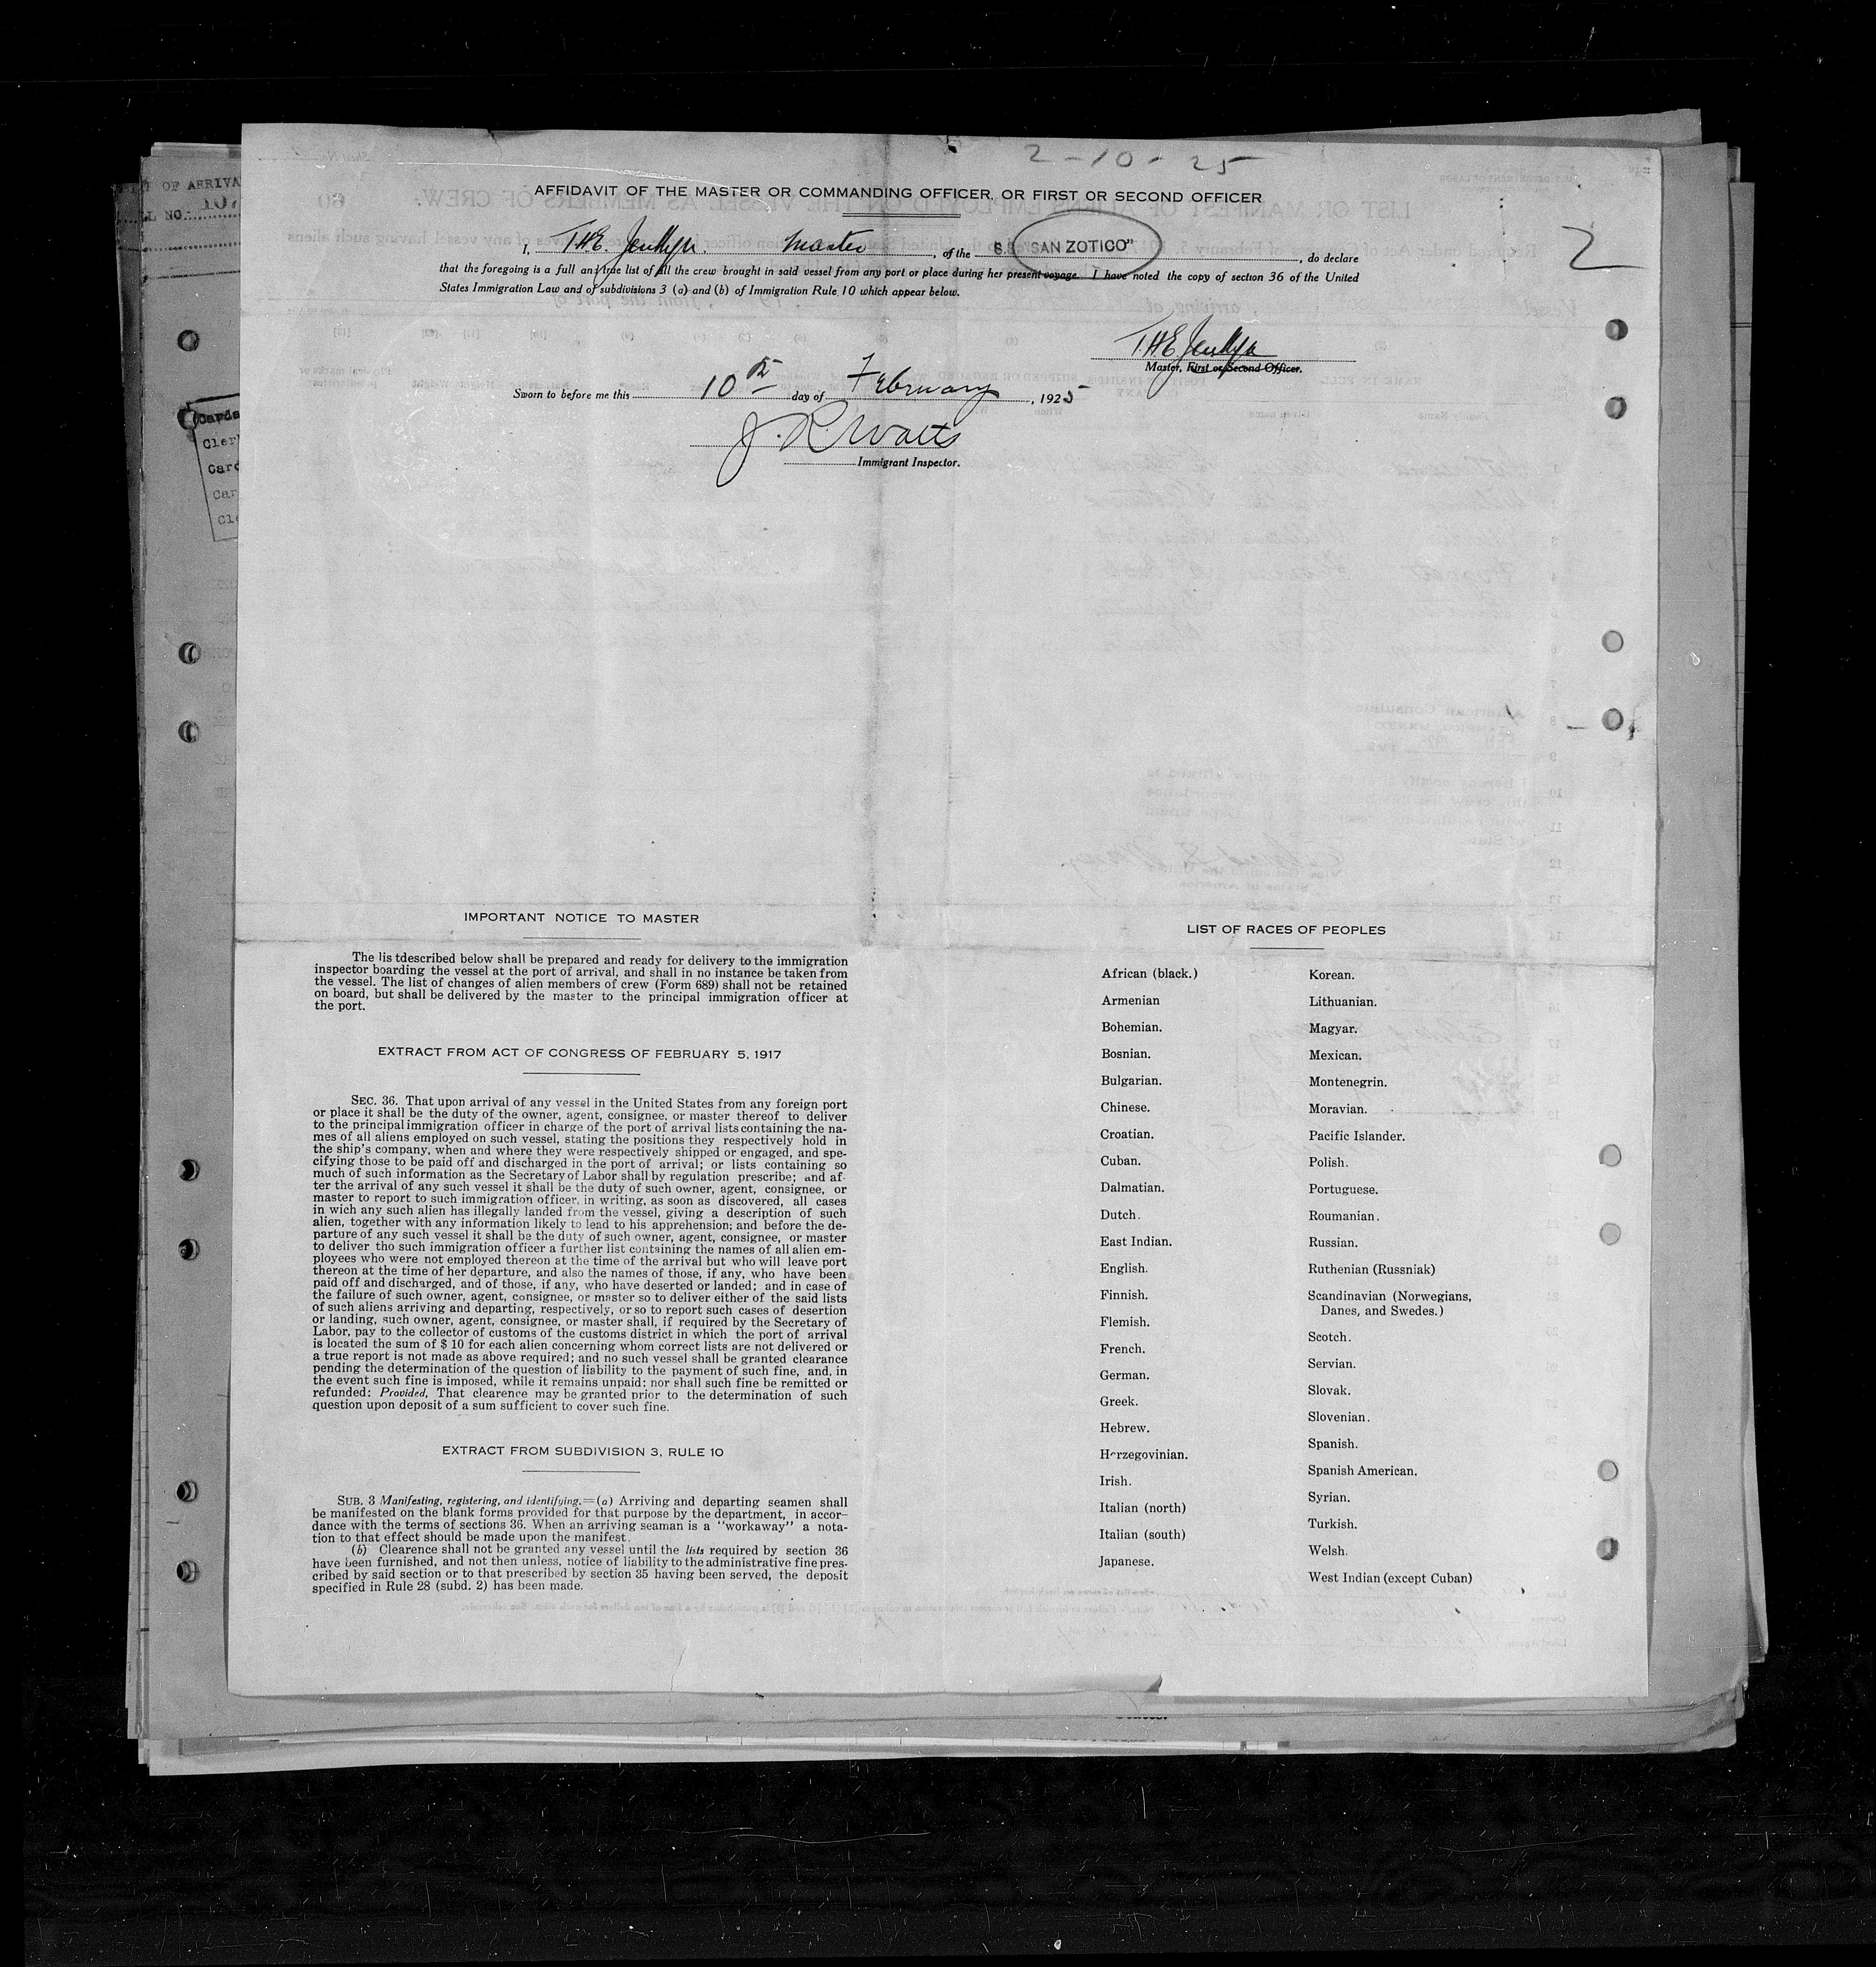 2-10-25
AFFIDAVIT OF THE MASTER OR COMMANDING OFFICER, OR FIRST OR SECOND OFFICER
2
I, T.H.E. Master, of the S.S. "SAN ZOTICO", do declare
that the foregoing is a full and true list of all the crew brought in said vessel from any port or place during her present voyage. I have noted the copy of section 36 of the United
States Immigration Law and of subdivisions 3 (a) and (b) of Immigration Rule 10 which appear below.
T.H.E.
Master, First or Second Officer.
Sworn to before me this 10th day of February, 1925
J. R. Watts
Immigrant Inspector.
IMPORTANT NOTICE TO MASTER
The lis tdescribed below shall be prepared and ready for delivery to the immigration
inspector boarding the vessel at the port of arrival, and shall in no instance be taken from
the vessel. The list of changes of alien members of crew (Form 689) shall not be retained
on board, but shall be delivered by the master to the principal immigration officer at
the port.
EXTRACT FROM ACT OF CONGRESS OF FEBRUARY 5, 1917
SEC. 36. That upon arrival of any vessel in the United States from any foreign port
or place it shall be the duty of the owner, agent, consignee, or master thereof to deliver
to the principal immigration officer in charge of the port of arrival lists containing the na-
mes of all aliens employed on such vessel, stating the positions they respectively hold in
the ship's company, when and where they were respectively shipped or engaged, and spe-
cifying those to be paid off and discharged in the port of arrival; or lists containing so
much of such information as the Secretary of Labor shall by regulation prescribe; and af-
ter the arrival of any such vessel it shall be the duty of such owner, agent, consignee, or
master to report to such immigration officer, in writing, as soon as discovered, all cases
in wich any such alien has illegally landed from the vessel, giving a description of such
alien, together with any information likely to lead to his apprehension; and before the de-
parture of any such vessel it shall be the duty of such owner, agent, consignee, or master
to deliver tho such immigration officer a further list containing the names of all alien em-
ployees who were not employed thereon at the time of the arrival but who will leave port
thereon at the time of her departure, and also the names of those, if any, who have been
paid off and discharged, and of those, if any, who have deserted or landed; and in case of
the failure of such owner, agent, consignee, or master so to deliver either of the said lists
of such aliens arriving and departing, respectively, or so to report such cases of desertion
or landing, such owner, agent, consignee, or master shall, if required by the Secretary of
Labor, pay to the collector of customs of the customs district in which the port of arrival
is located the sum of $ 10 for each alien concerning whom correct lists are not delivered or
a true report is not made as above required; and no such vessel shall be granted clearance
pending the determination of the question of liability to the payment of such fine, and, in
the event such fine is imposed, while it remains unpaid; nor shall such fine be remitted or
refunded: Provided, That clearence may be granted prior to the determination of such
question upon deposit of a sum sufficient to cover such fine.
EXTRACT FROM SUBDIVISION 3, RULE 10
SUB. 3 Manifesting, registering, and identifying.=(a) Arriving and departing seamen shall
be manifested on the blank forms provided for that purpose by the department, in accor-
dance with the terms of sections 36. When an arriving seaman is a "workaway" a nota-
tion to that effect should be made upon the manifest.
(b) Clearence shall not be granted any vessel until the lists required by section 36
have been furnished, and not then unless, notice of liability to the administrative fine pres-
cribed by said section or to that prescribed by section 35 having been served, the deposit
specified in Rule 28 (subd. 2) has been made.
LIST OF RACES OF PEOPLES
African (black.)
Armenian
Bohemian.
Bosnian.
Bulgarian.
Chinese.
Croatian.
Cuban.
Dalmatian.
Dutch.
East Indian.
English.
Finnish.
Flemish.
French.
German.
Greek.
Hebrew.
Herzegovinian.
Irish.
Italian (north)
Italian (south)
Japanese.
Korean.
Lithuanian.
Magyar.
Mexican.
Montenegrin.
Moravian.
Pacific Islander.
Polish.
Portuguese.
Roumanian.
Russian.
Ruthenian (Russniak)
Scandinavian (Norwegians,
Danes, and Swedes.)
Scotch.
Servian.
Slovak.
Slovenian.
Spanish.
Spanish American.
Syrian.
Turkish.
Welsh.
West Indian (except Cuban)